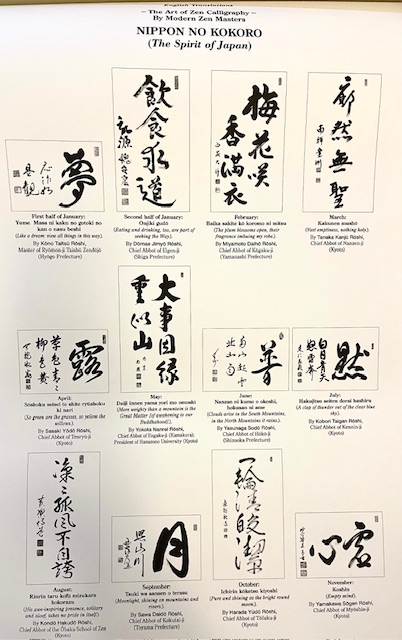 English Translations
– The Art of Zen Calligraphy –
By Modern Zen Masters
NIPPON NO KOKORO
(The Spirit of Japan)
夢
First half of January:
Yume Masa ni kaku no gotoki no
kan o nasu beshi
(Like a dream; view all things in this way).
By Kōno Taitsū Rōshi,
Master of Ryōmon-ji Taishi Zendōjō
(Hyōgo Prefecture)
飲食
求道
Second half of January:
Onjiki gudō
(Eating and drinking, too, are part of
seeking the Way).
By Dōmae Jimyō Rōshi,
Chief Abbot of Eigen-ji
(Shiga Prefecture)
梅花咲
香満衣
February:
Baika sakite kō koromo ni mitsu
(The plum blossoms open, their
fragrance imbuing my robe).
By Miyamoto Daihō Rōshi,
Chief Abbot of Kōgaku-ji
(Yamanashi Prefecture)
廓然無聖
March:
Kakunen mushō
(Vast emptiness, nothing holy).
By Tanaka Kanjū Rōshi,
Chief Abbot of Nanzen-ji
(Kyoto)
露
April:
Sōshoku seisei to shite ryūshoku
ki nari
(So green are the grasses, so yellow the
willows).
By Sasaki Yōdō Rōshi,
Chief Abbot of Tenryū-ji
(Kyoto)
大事因縁
重似山
May:
Daiji innen yama yori mo omoshi
(More weighty than a mountain is the
Great Matter [of awakening to our
Buddhahood]).
By Yokota Nanrei Rōshi,
Chief Abbot of Engaku-ji (Kamakura);
President of Hanazono University (Kyoto)
June:
Nanzan ni kumo o okoshi,
hokusan ni ame
(Clouds arise in the South Mountains,
in the North Mountains it rains).
By Yasunaga Sodō Rōshi,
Chief Abbot of Hōkō-ji
(Shizuoka Prefecture)
黙
July:
Hakujitsu seiten dorai hashiru
(A clap of thunder out of the clear blue
sky).
By Kobori Taigan Rōshi,
Chief Abbot of Kennin-ji
(Kyoto)
凛々孤風不自誇
August:
Rinrin taru kofū mizukara
hokorazu
(His awe-inspiring presence, solitary
and aloof, takes no pride in itself).
By Kondō Hakudō Rōshi,
Chief Abbot of the Ōbaku School of Zen
(Kyoto)
月
照山川
September:
Tsuki wa sansen o terasu
(Moonlight, shining on mountains and
rivers).
By Sawa Daidō Rōshi,
Chief Abbot of Kokutai-ji
(Toyama Prefecture)
October:
Ichirin kōketsu kiyoshi
(Pure and shining is the bright round
moon).
By Harada Yūdō Rōshi,
Chief Abbot of Tōfuku-ji
(Kyoto)
虚心
November:
Koshin
(Empty mind).
By Yamakawa Sōgen Rōshi,
Chief Abbot of Myōshin-ji
(Kyoto)